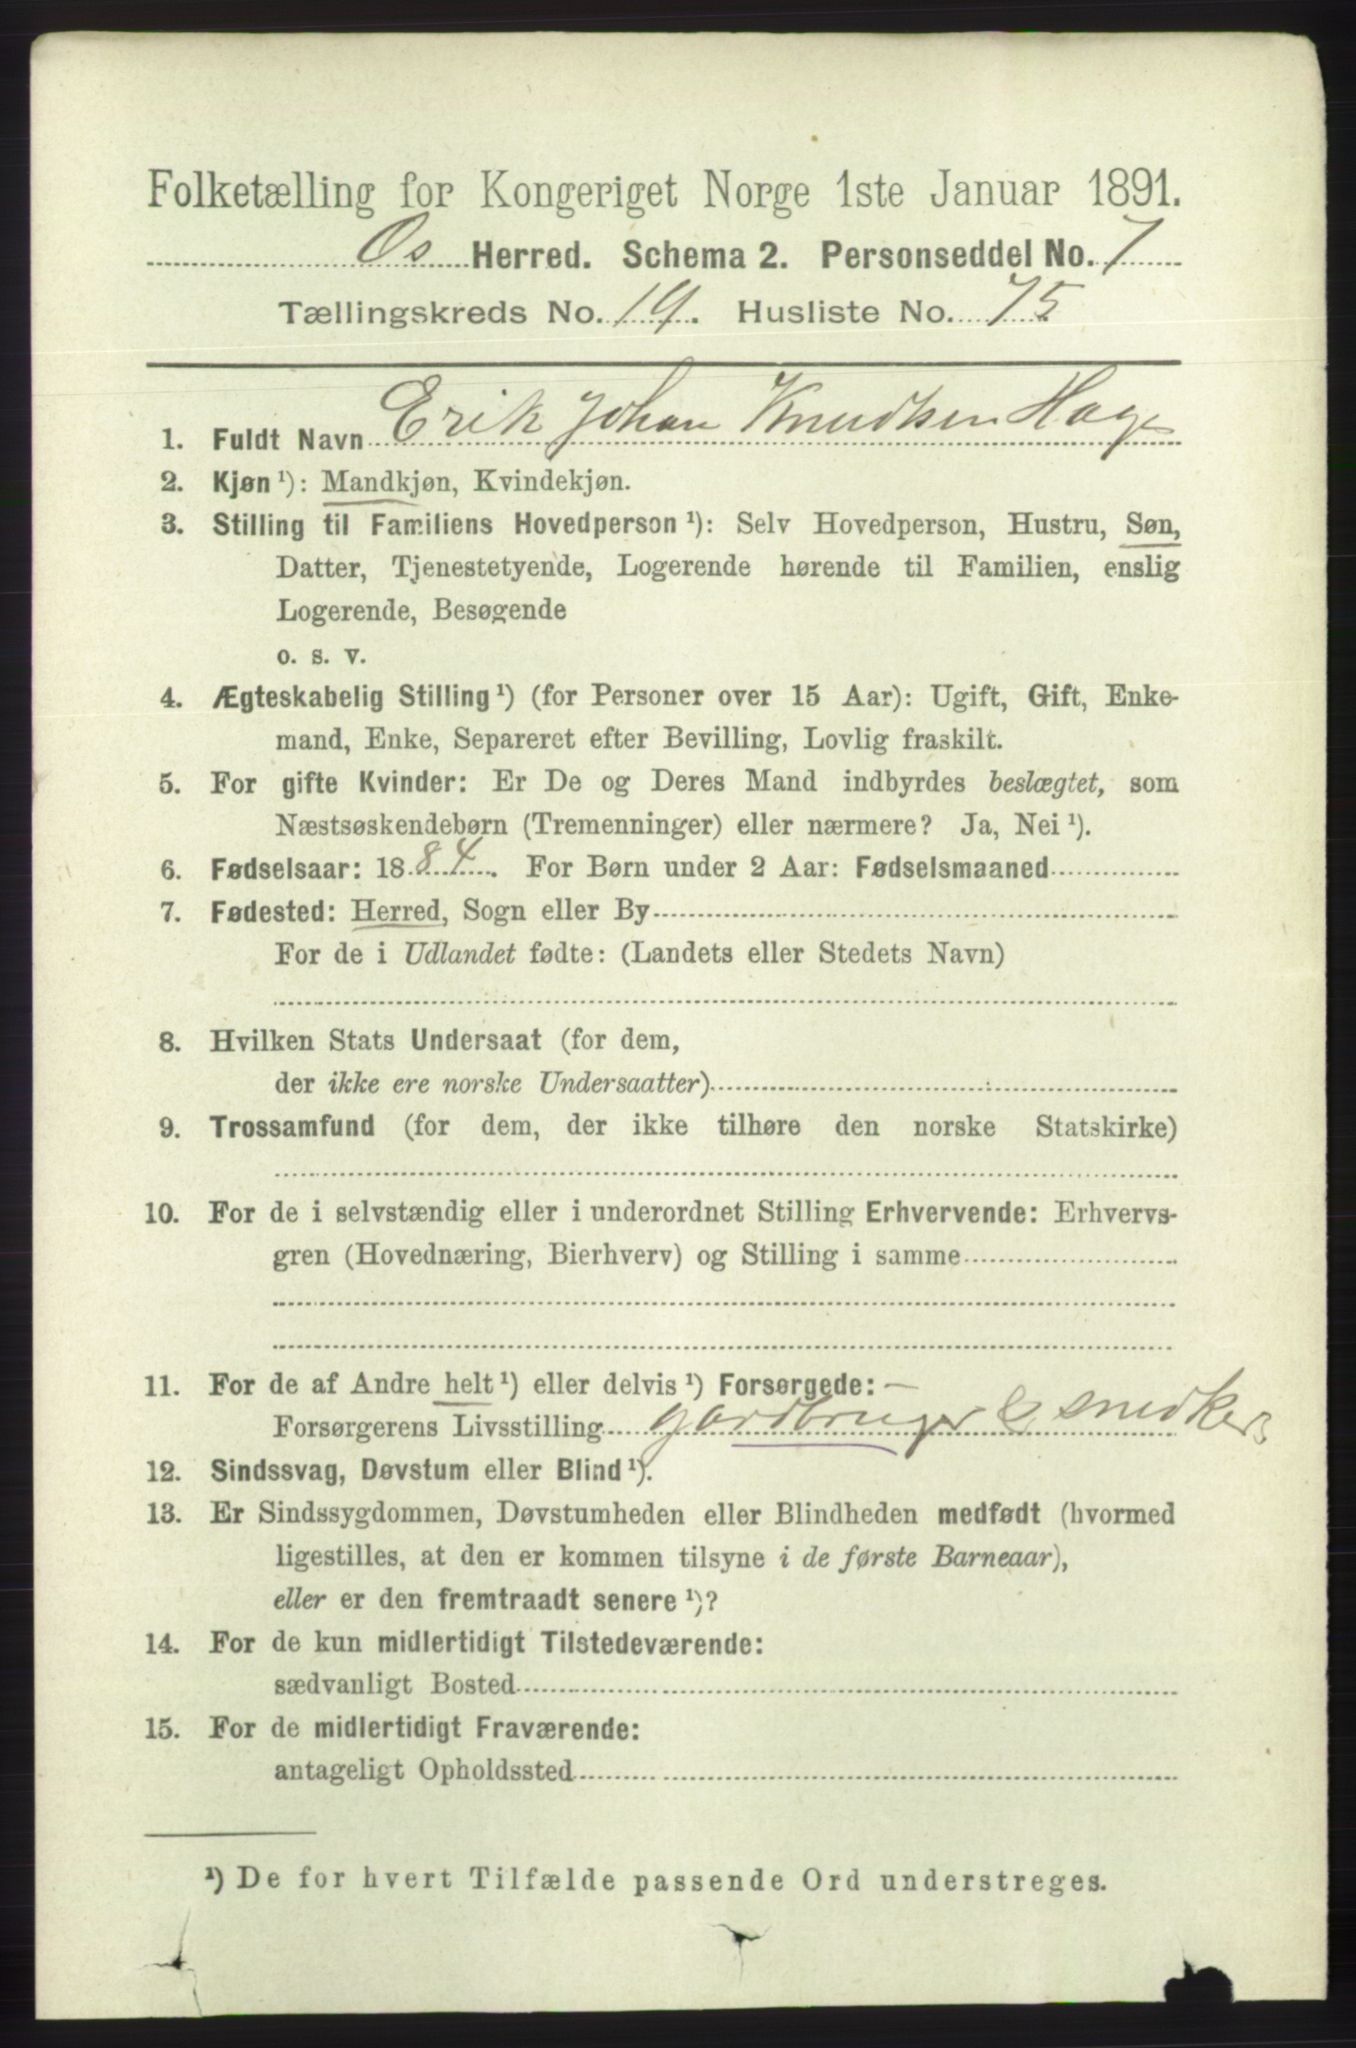 Folketælling for Kongeriget Norge 1ste Januar 1891.
Os Herred. Schema 2. Personseddel No. 7
Tællingskreds No. 19. Husliste No. 75
1. Fuldt Navn Erik Johan Knudsen Hage
2. Kjøn ¹): Mandkjøn, Kvindekjøn.
3. Stilling til Familiens Hovedperson ¹): Selv Hovedperson, Hustru, Søn,
Datter, Tjenestetyende, Logerende hørende til Familien, enslig
Logerende, Besøgende
o. s. v.
4. Ægteskabelig Stilling ¹) (for Personer over 15 Aar): Ugift, Gift, Enke-
mand, Enke, Separeret efter Bevilling, Lovlig fraskilt.
5. For gifte Kvinder: Er De og Deres Mand indbyrdes beslægtet, som
Næstsøskendebørn (Tremenninger) eller nærmere? Ja, Nei ¹).
6. Fødselsaar: 1884. For Børn under 2 Aar: Fødselsmaaned
7. Fødested: Herred, Sogn eller By
For de i Udlandet fødte: (Landets eller Stedets Navn)
8. Hvilken Stats Undersaat (for dem,
der ikke ere norske Undersaatter)
9. Trossamfund (for dem, der ikke tilhøre den norske Statskirke)
10. For de i selvstændig eller i underordnet Stilling Erhvervende: Erhvervs-
gren (Hovednæring, Bierhverv) og Stilling i samme
11. For de af Andre helt ¹) eller delvis ¹) Forsørgede: —
Forsørgerens Livsstilling gardbruger & snedker
12. Sindssvag, Døvstum eller Blind ¹).
13. Er Sindssygdommen, Døvstumheden eller Blindheden medfødt (hvormed
ligestilles, at den er kommen tilsyne i de første Barneaar),
eller er den fremtraadt senere ¹)?
14. For de kun midlertidigt Tilstedeværende:
sædvanligt Bosted
15. For de midlertidigt Fraværende:
antageligt Opholdssted
¹) De for hvert Tilfælde passende Ord understreges.